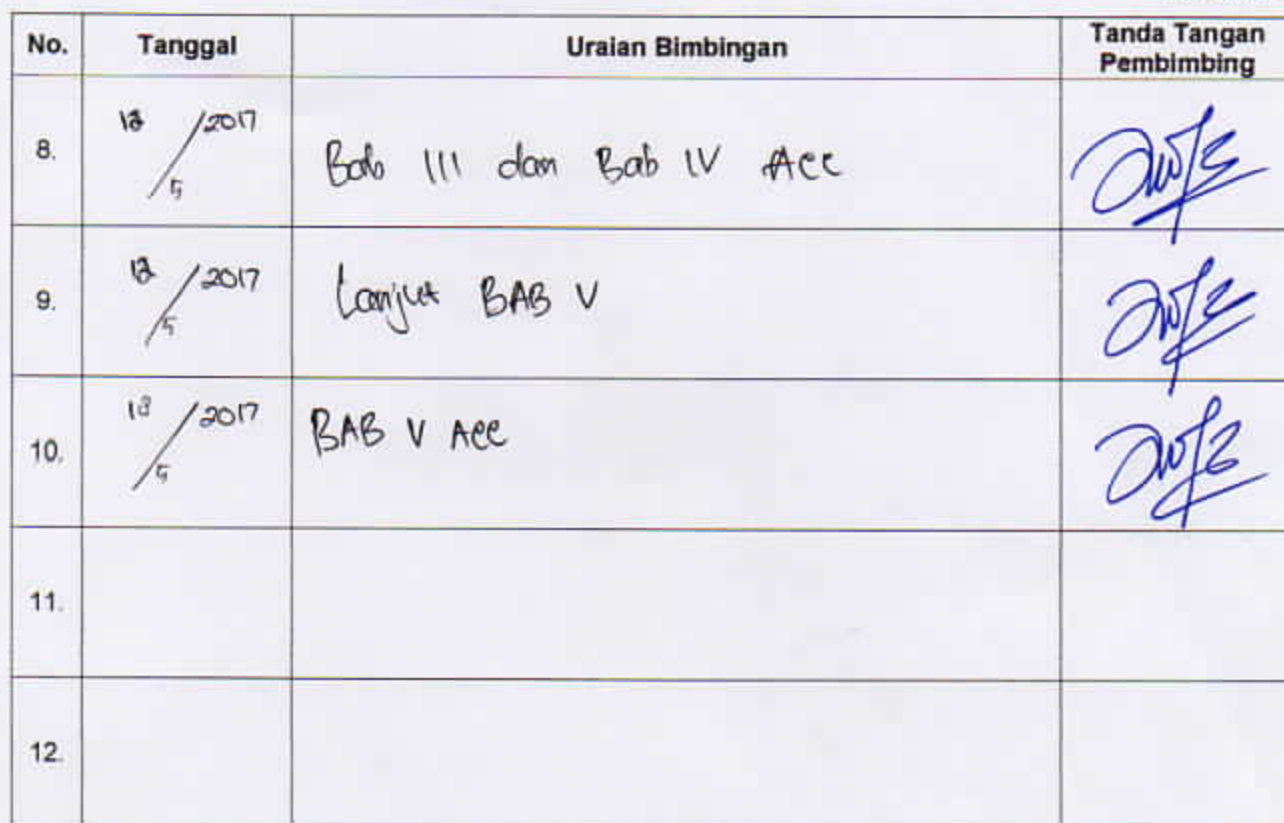 No. Tanggal Uraian Bimbingan Tanda Tangan Pembimbing
8. 12/5/2017 Bab III dan Bab IV Acc
9. 12/5/2017 Lanjut BAB V
10. /5/2017 BAB V Acc
11.
12.